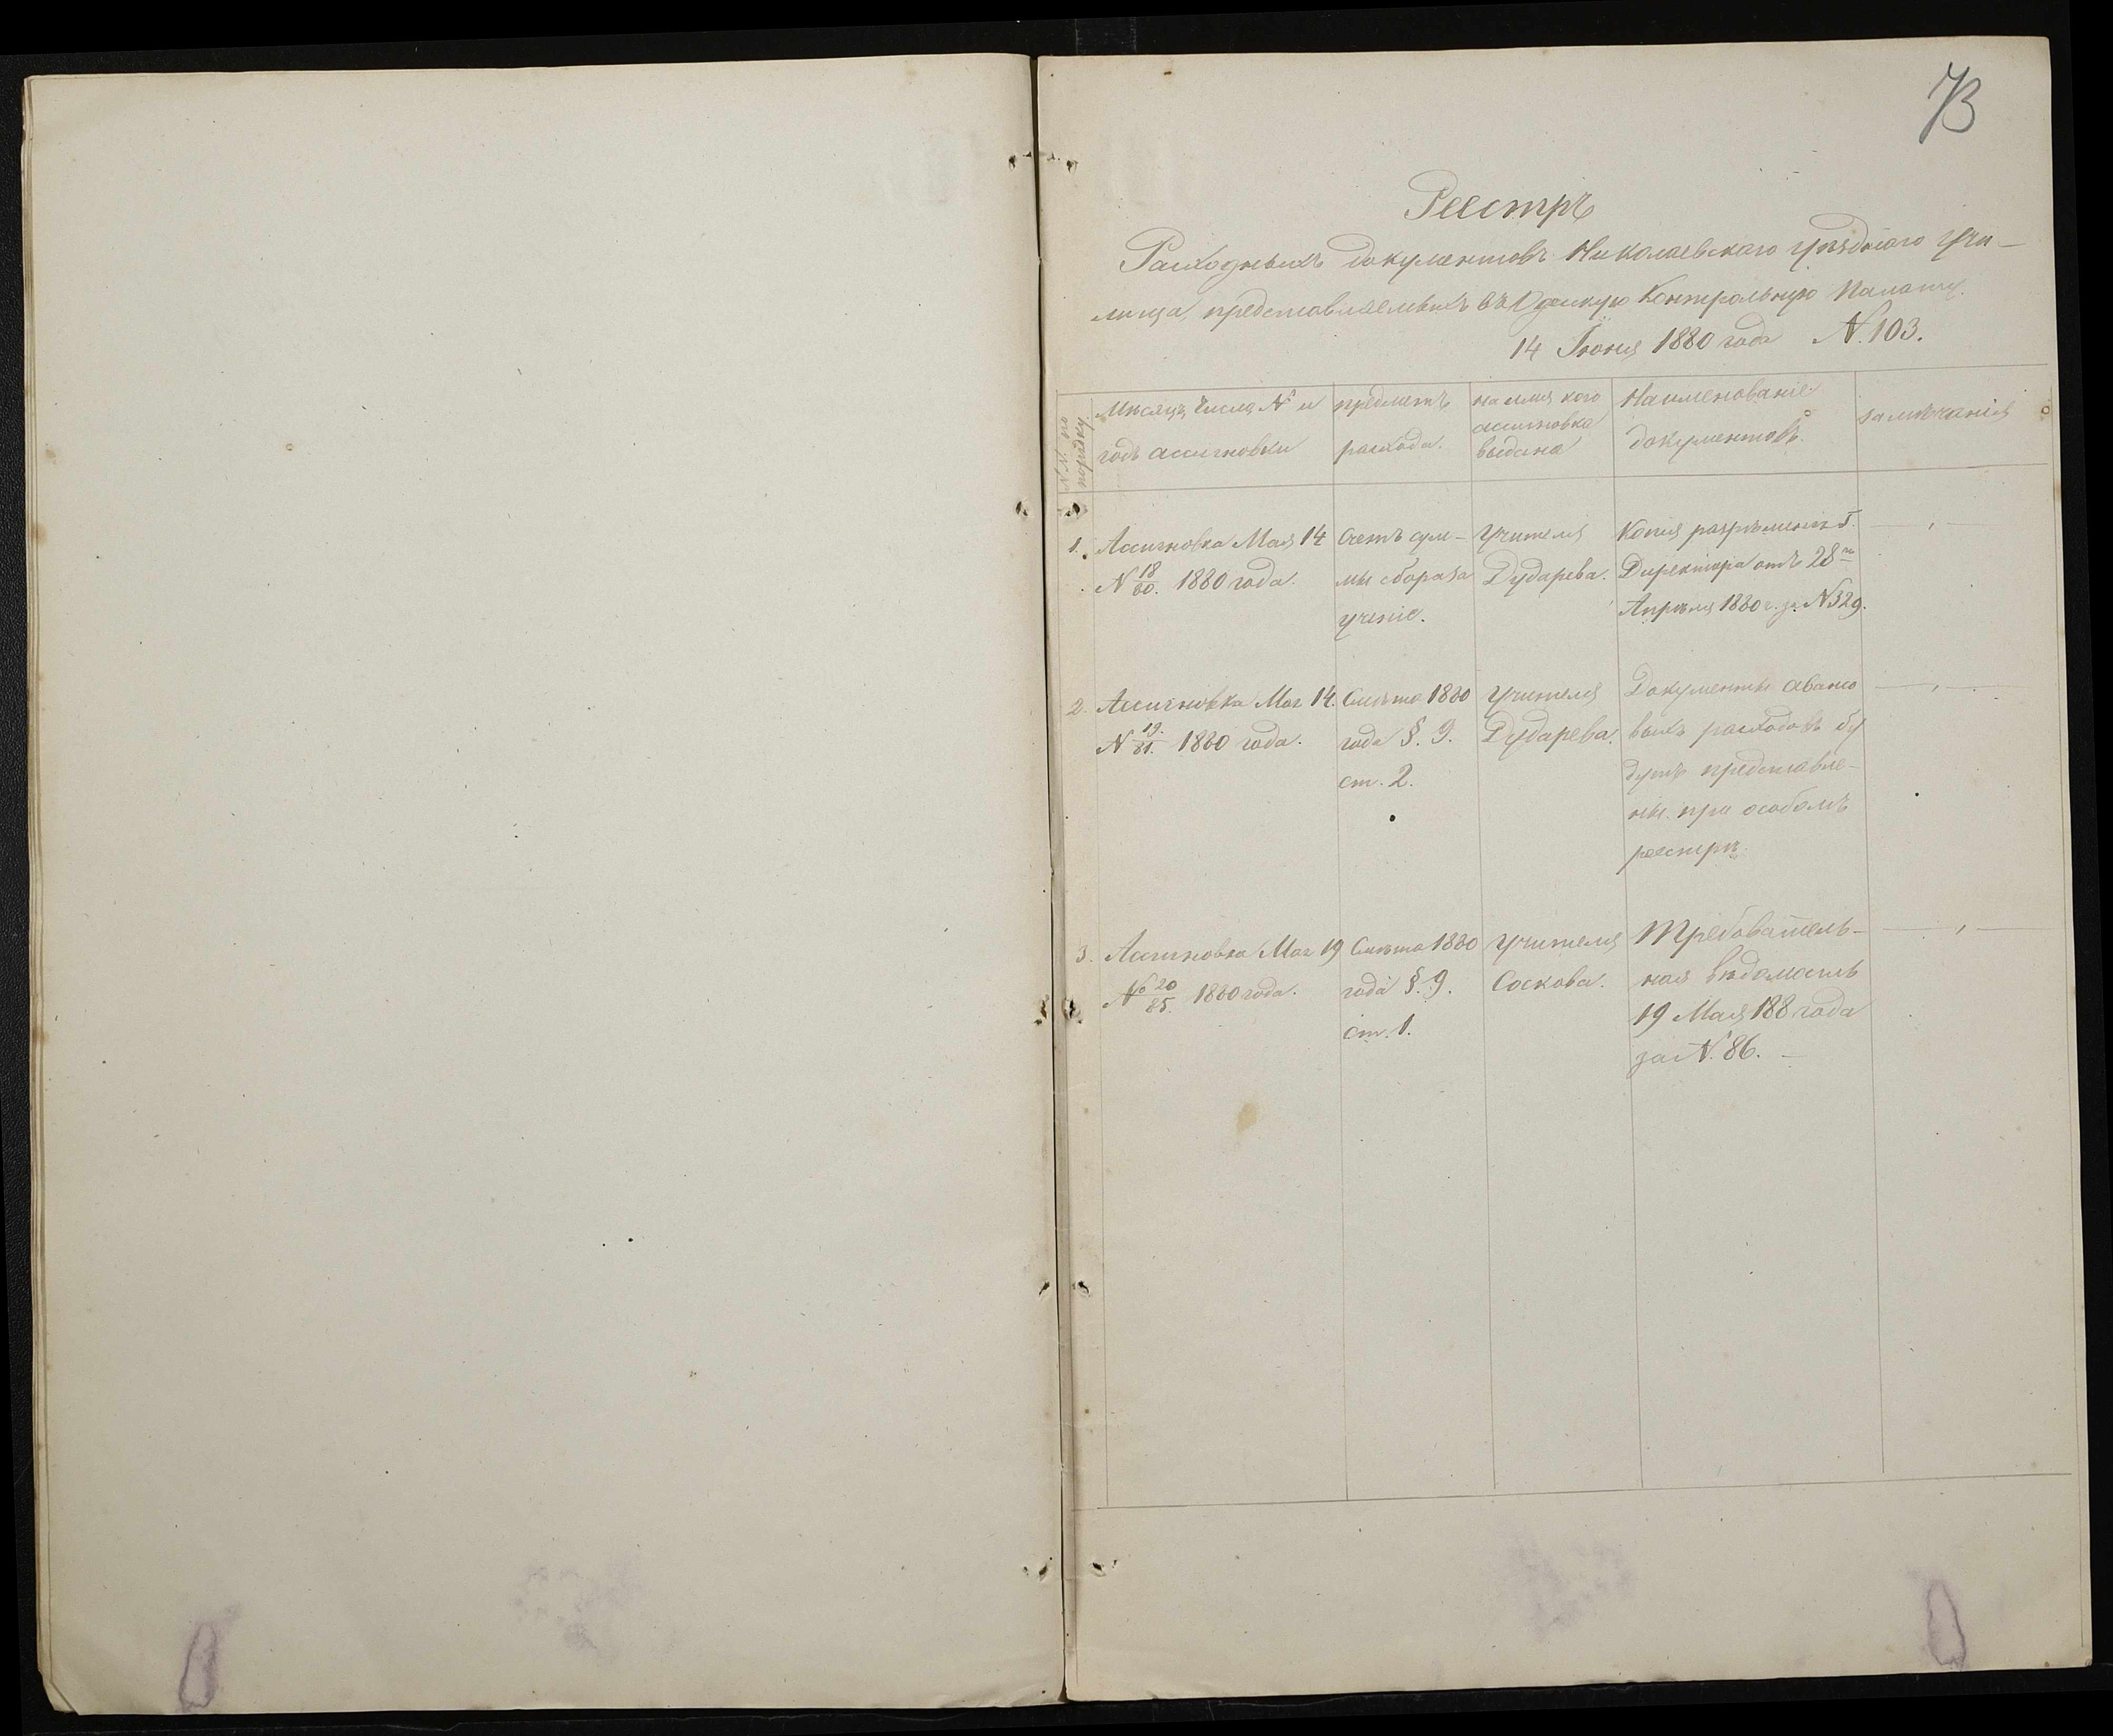 73
Реестръ
Расходныхъ документовъ Николаевского уѣзднаго учи-
лища, представляемыхъ въ Одесскую Контрольную Палату.
14 Іюня 1880 года N. 103.
NN по порядку.
Мѣсяцъ, число, N и годъ ассигновки
предметъ расхода.
на имя кого ассигновка выдана
Наименованіе документовъ.
замѣчанія
1. Ассигновка Мая 14 N 18/80. 1880 года.
Счетъ сум-
мы сбора за
ученіе.
Учителя
Дударева.
Копія разрѣшенія Г.
Директора отъ 28го
Апрѣля 1880 г. за N 329.
2. Ассигновка Мая 14. N 19./81. 1880 года.
Смѣта 1880
года §. 9.
ст. 2.
Учителя
Дударева.
Документы авансо
выхъ расходовъ бу
дутъ представле-
ны при особомъ
реестрѣ.
3. Ассигновка Мая 19 № 20/85. 1880 года.
Смѣта 1880
года §. 9.
ст. 1.
Учителя
Соскова.
Требователь-
ная вѣдомость
19 Мая 188 года
за N. 86. —